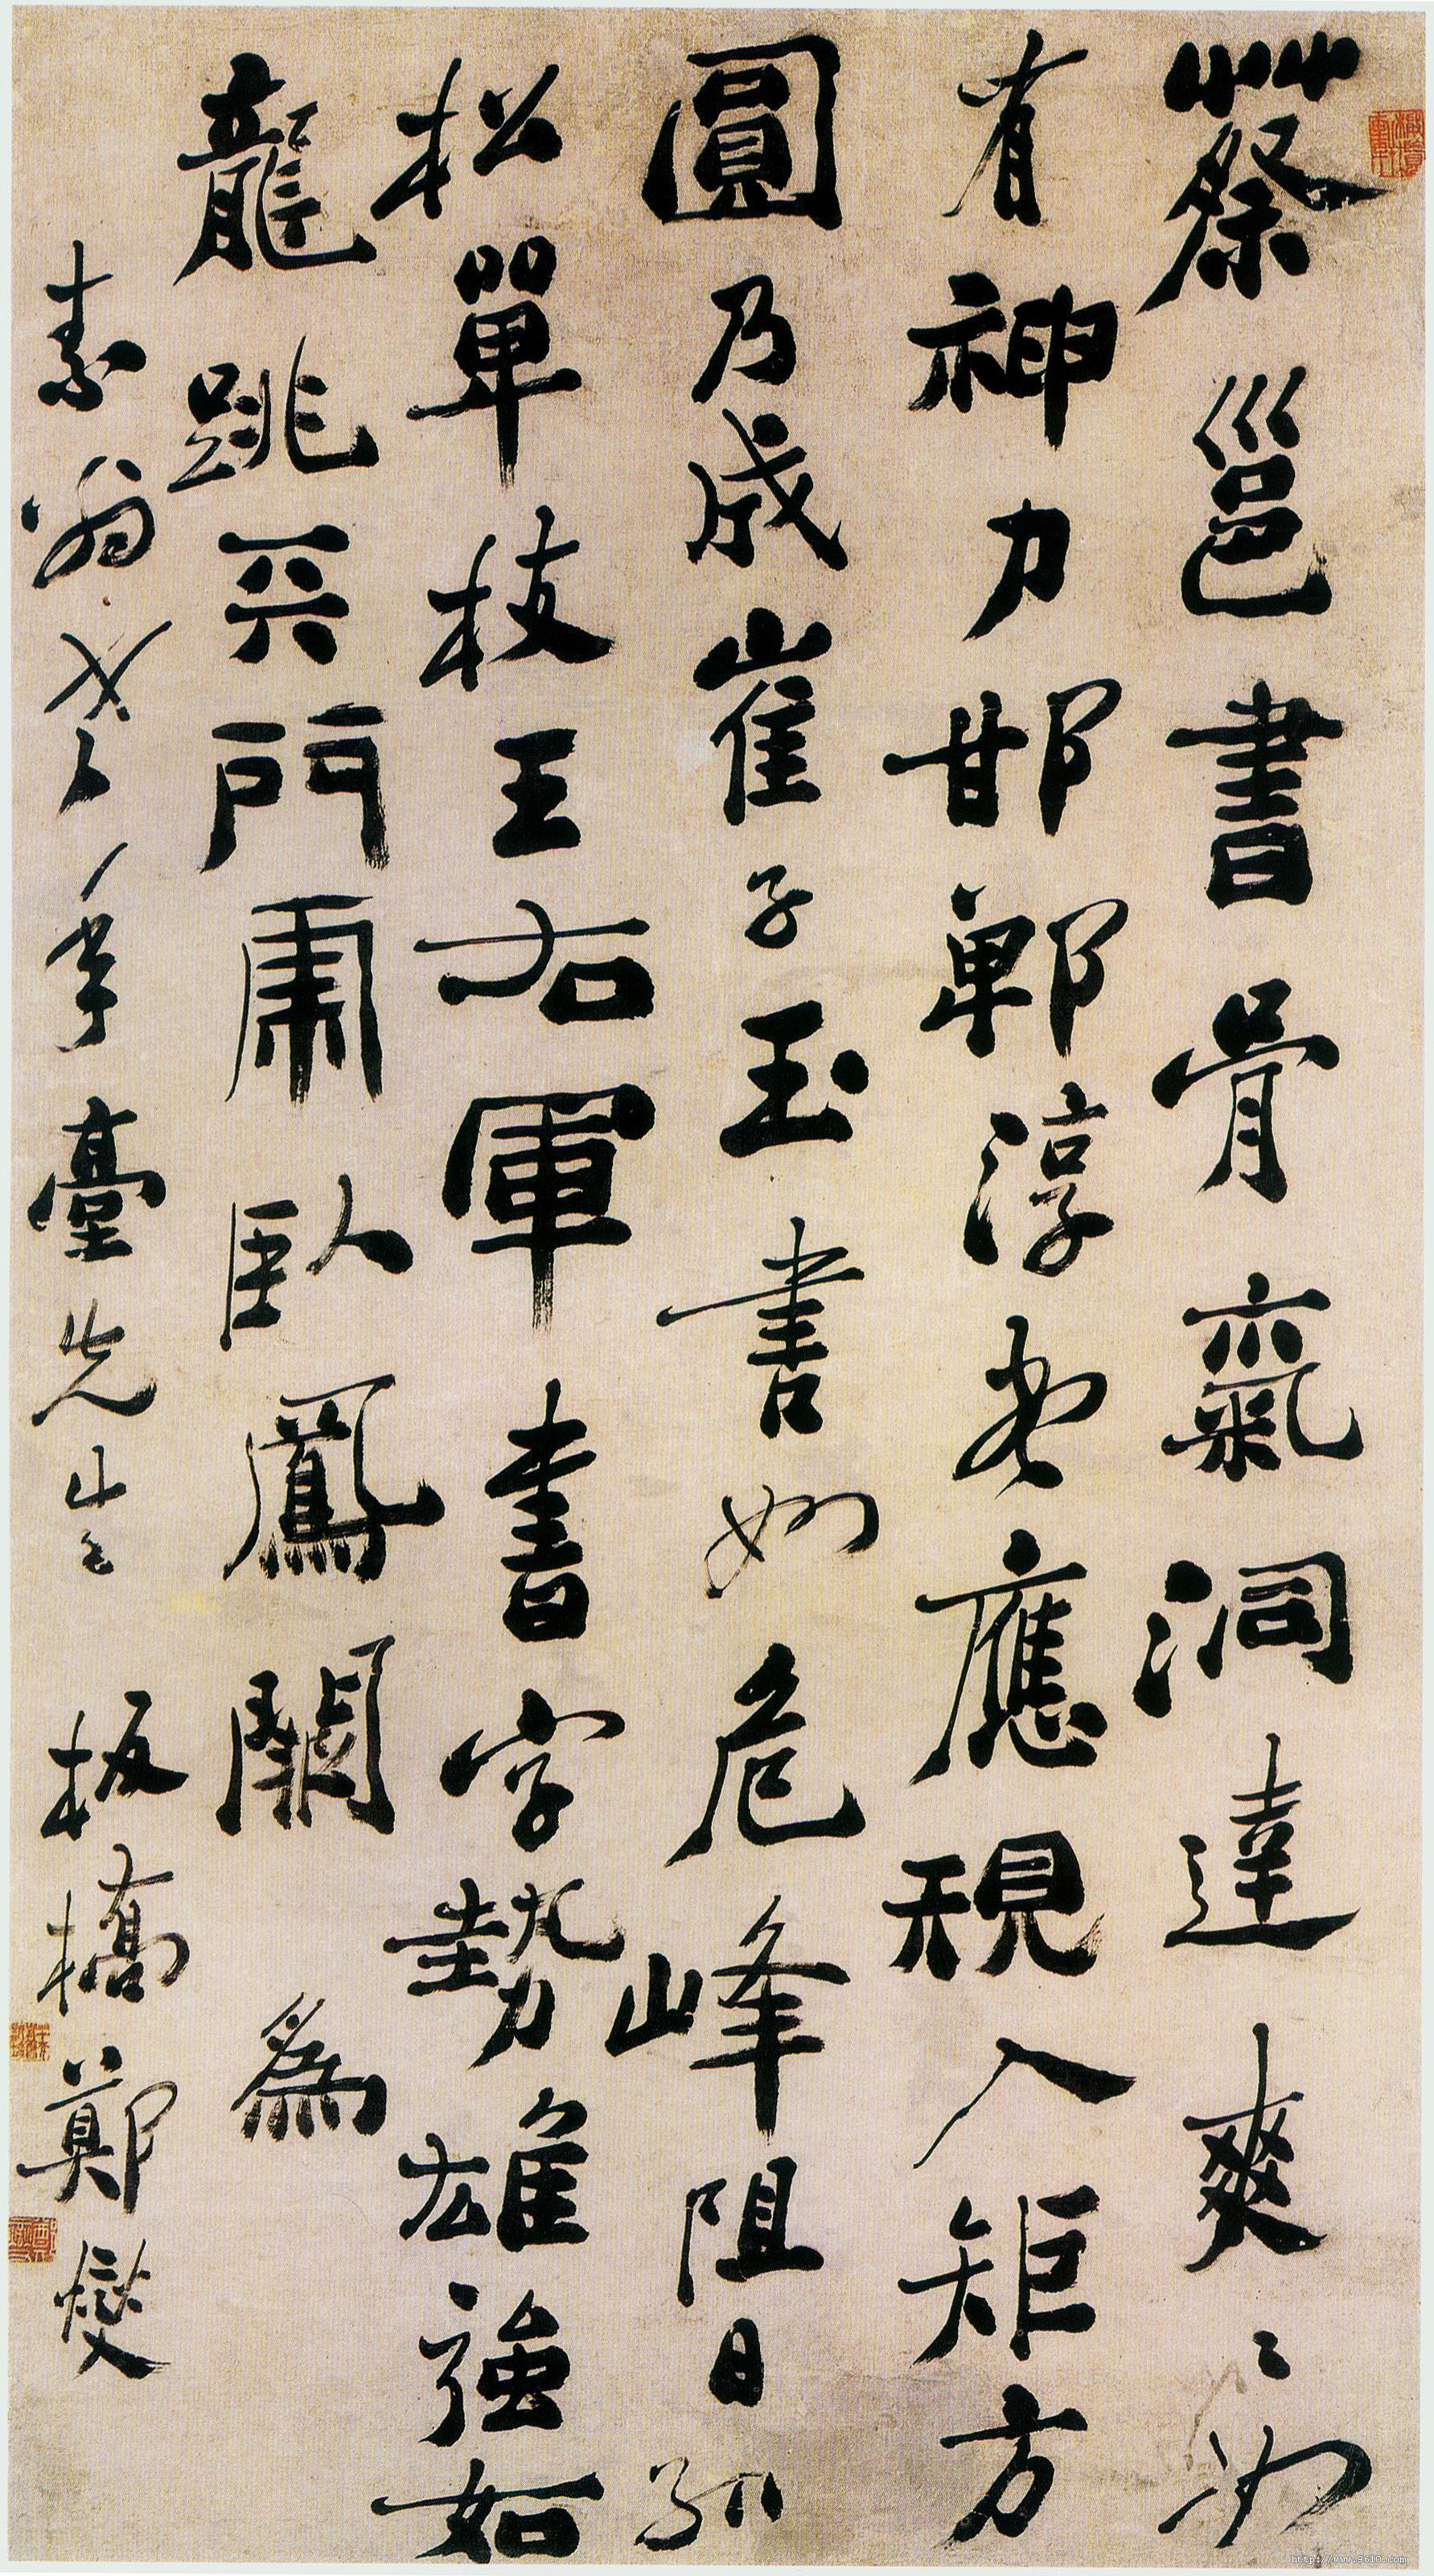 蔡邕書骨氣洞達爽〻如
有神力邯鄲淳書應規入矩方
圓乃成崔子玉書如危峰阻日孤
松單枝王右軍書字勢雄強如
龍跳天門虎臥鳳闕為
素翁年臺先生 板橋鄭燮
http://www.9610.com